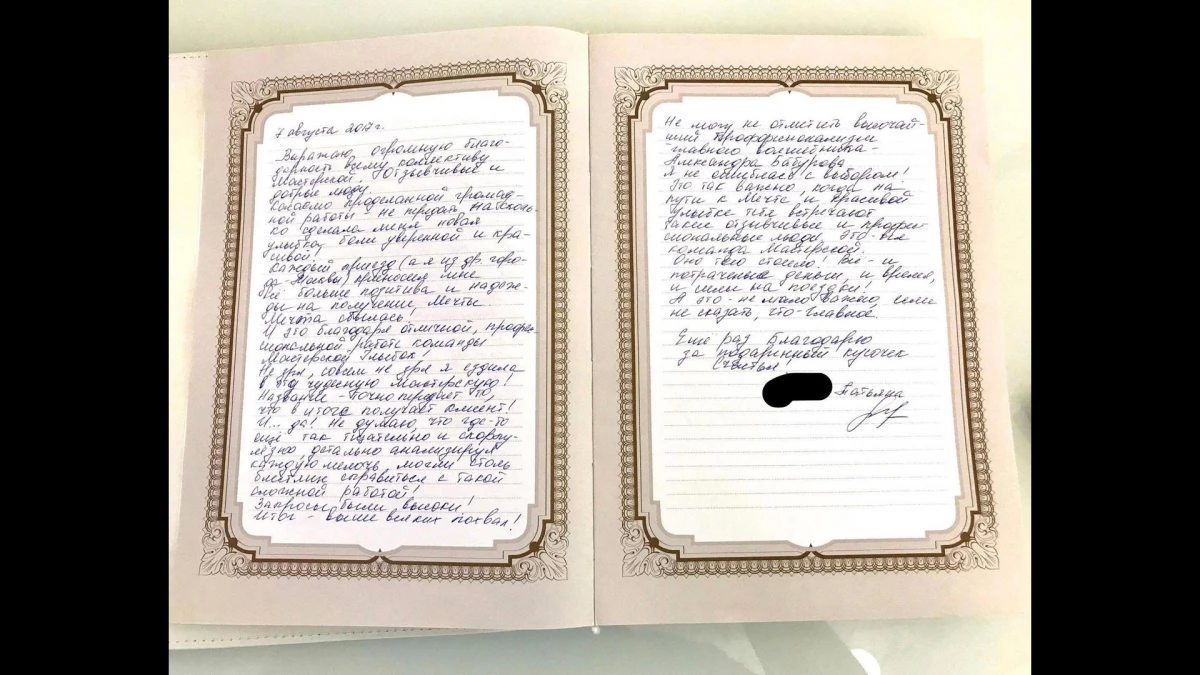 7 августа 2017г.
Выражаю огромную благо-
дарность всему коллективу
Мастерской. Отзывчивые и
добрые люди.
Касаемо проделанной громад-
ной работы - не передать насколь-
ко сделала меня новая
улыбка боли уверенной и кра-
сивой!
Каждый приезд (а я из др. горо-
да - Москвы) приносил мне
всё больше позитива и надеж-
ды на получении Мечты.
Мечта сбылась!
И это благодаря отличной, профес-
сиональной работе команды
Мастерской Улыбок!
Не зря, совсем не зря я ездила
в эту чудесную Мастерскую!
Название - точно передаёт то,
что в итоге получает клиент!
И... да! Не думаю, что где-то
ещё так тщательно и скорпу-
лёзно, детально анализируя
каждую мелочь, могли столь
блестяще справиться с такой
сложной работой!
Запросы были высоки!
Итог - выше всяких похвал!
Не могу не отметить высочай-
ший профессионализм
главного волшебника -
Александра Батурова
Я не ошиблась с выбором!
Это так важно, когда на
пути к Мечте и красивой
улыбке тебя встречают
такие отзывчивые и профес-
сиональные люди. Это - вы
команда Мастерской.
Оно того стоило! Всё - и
потраченые деньги, и время,
и силы на поездки!
А это - не мало важно, если
не сказать, что - главное.
Еще раз Благодарю
за подаринный кусочек
Счастья
Татьяна